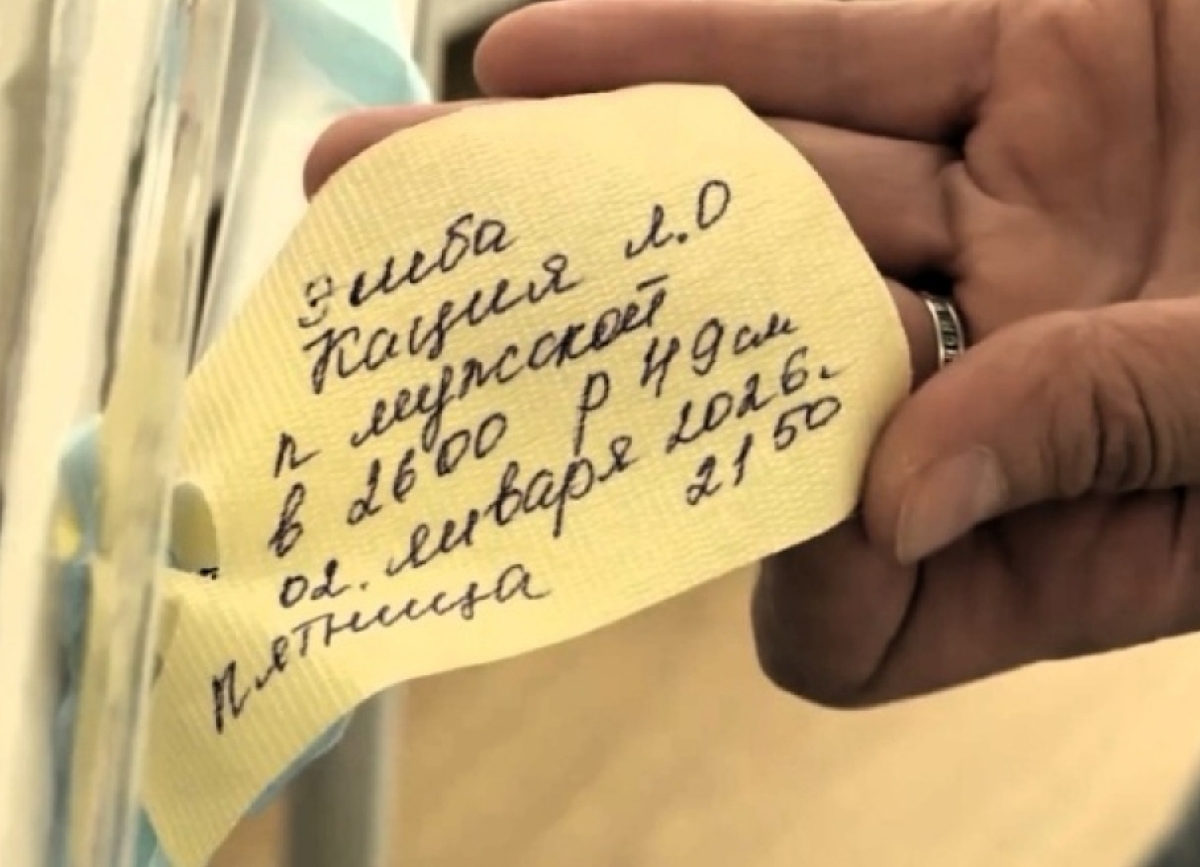 Эшба
Кация л.О
п мужской
в 2600 р 49см
02. января 2026.
21 50
пятница